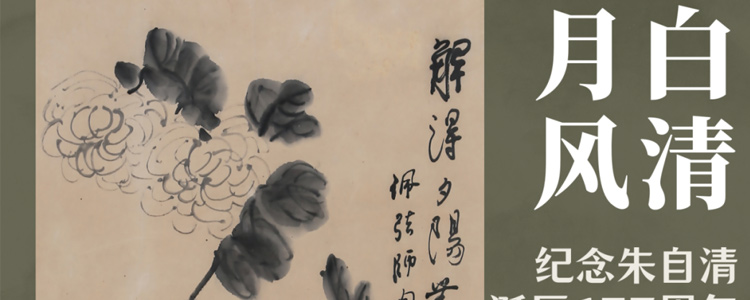 解得夕陽
佩弦師
月白
风清
纪念朱自清